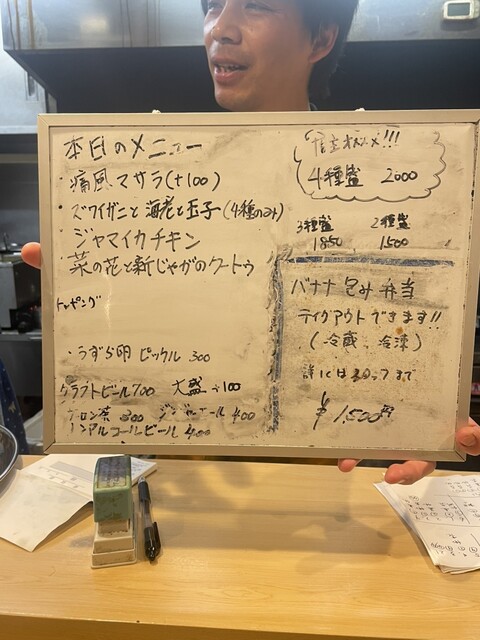 本日のメニュー
・痛風マサラ(+100)
・ズワイガニと海老と玉子(4種のみ)
・ジャマイカチキン
・菜の花と新じゃがのクートゥ
トッピング
・うずら卵 ピックル 300
クラフトビール700 大盛 +100
ウーロン茶 300 ジンジャエール 400
ノンアルコールビール 400
オススメ!!!
4種盛 2000
3種盛 2種盛
1850 1500
バナナ包み弁当
テイクアウトできます!!
(冷蔵・冷凍)
詳しくはスタッフまで
¥1,500円